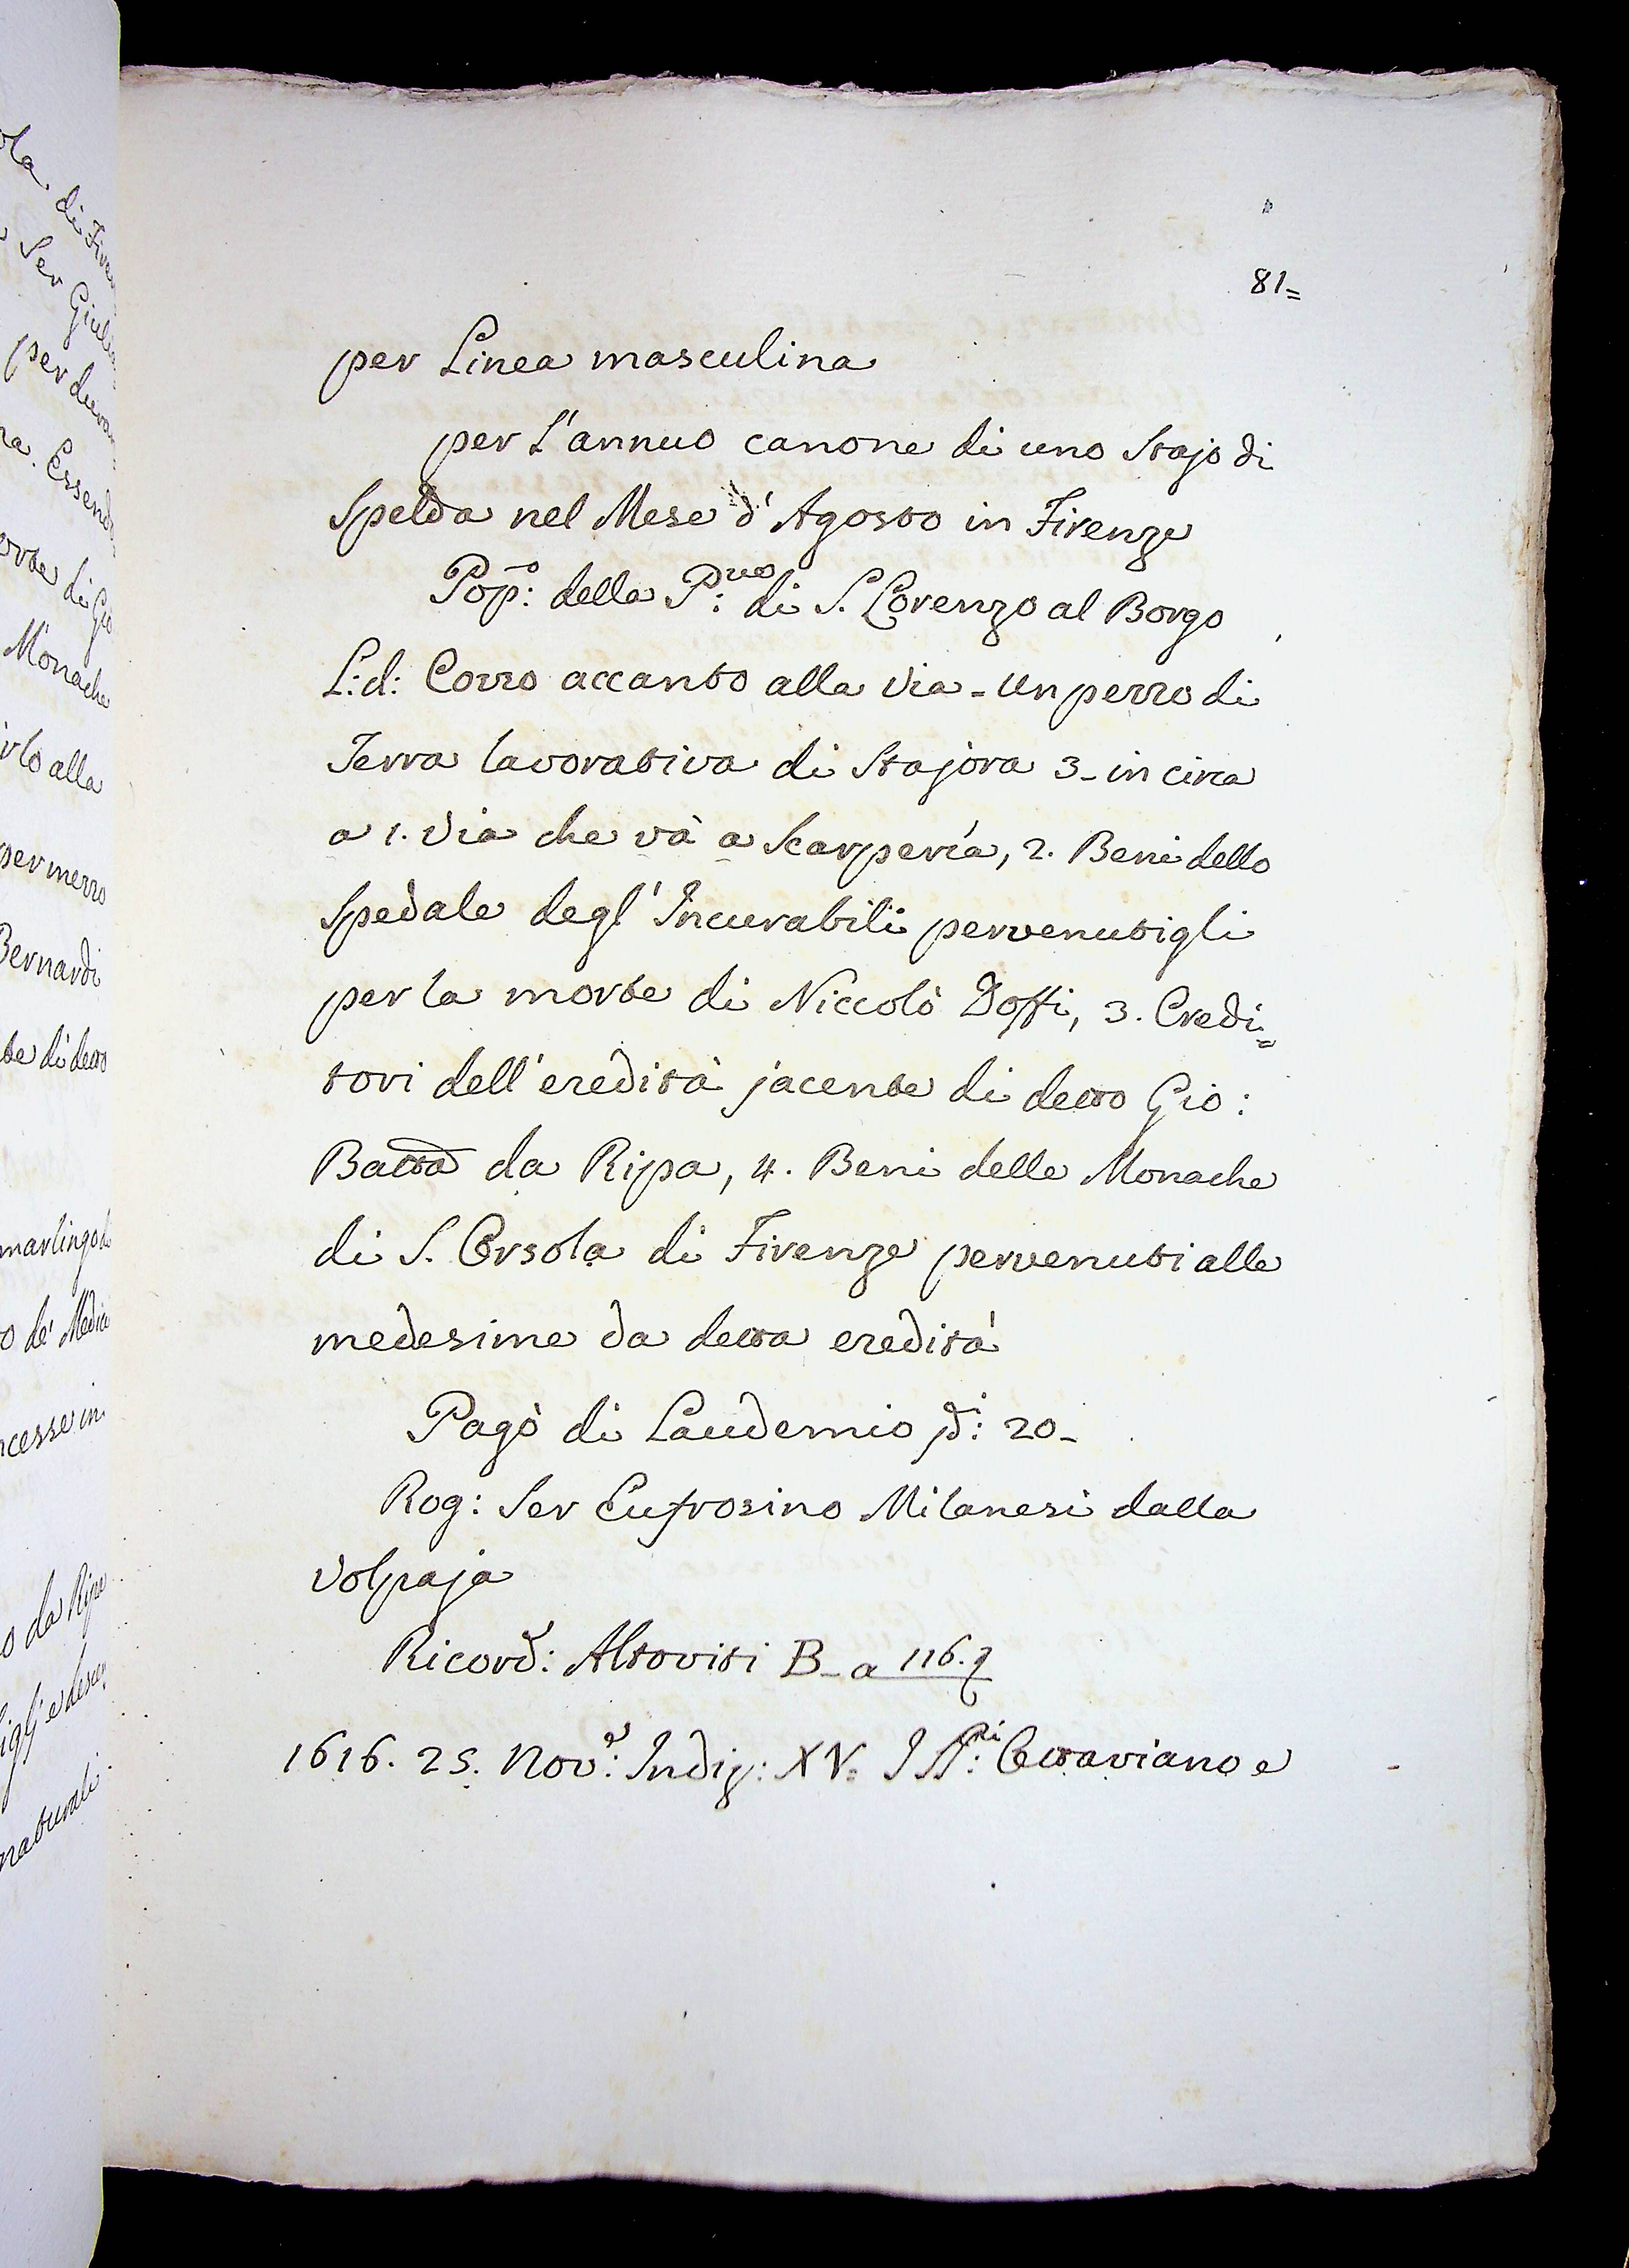 81=
per Linea masculina
per L'annuo canone di uno Stajo di
Spelda nel Mese d'Agosto in Firenze
Pop:º della P:ᵛᵉ di S. Lorenzo al Borgo
L: d: Cozzo accanto alla Via - Un pezzo di
Terra lavorativa di Stajora 3- in circa
a 1. Via che và a Scarpería, 2. Beni dello
Spedale degl'Incurabili pervenutigli
per la morte di Niccolò Doffi, 3. Credi=
tori dell'eredità jacente di detto Gio:
Batta da Ripa, 4. Beni delle Monache
di S. Orsola di Firenze pervenuti alle
medesime da detta eredità
Pagò di Laudemio 20-
Rog: Ser Eufrosino Milanesi dalla
Volpaja
Ricord: Altoviti B- a 116.
1616. 25. Nov:ᵉ Indiz: XV. I SS:ʳⁱ Ottaviano e
ola di Fire
Ser Giulia
per duran
na. Essend
orte di Gio
Monache
irlo alla
per mezzo
Bernardi
te di detto
marlingo di
o de' Medici
ncesse in
o da Ripa
igli e desce
naturali